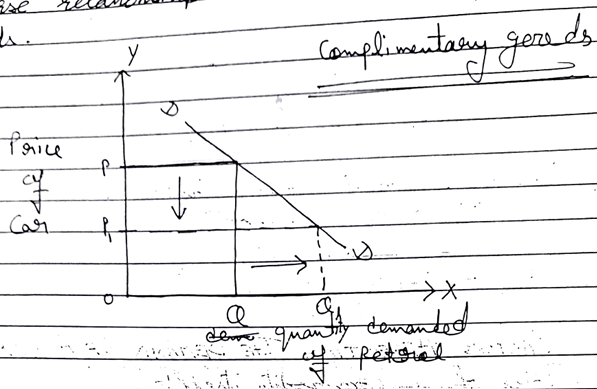 relationship
ds.
Complimentary goods
Y
D
Price
of
Car
P
P1
D
O
X
Q
Q1
dem quantity demanded
of Petrol